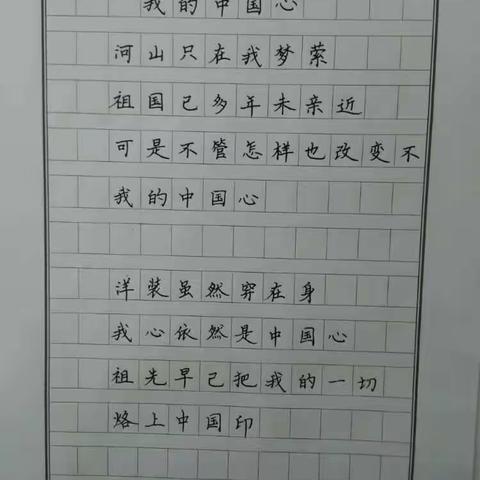 我的中国心
河山只在我梦萦
祖国已多年未亲近
可是不管怎样也改变不
我的中国心
洋装虽然穿在身
我心依然是中国心
祖先早已把我的一切
烙上中国印